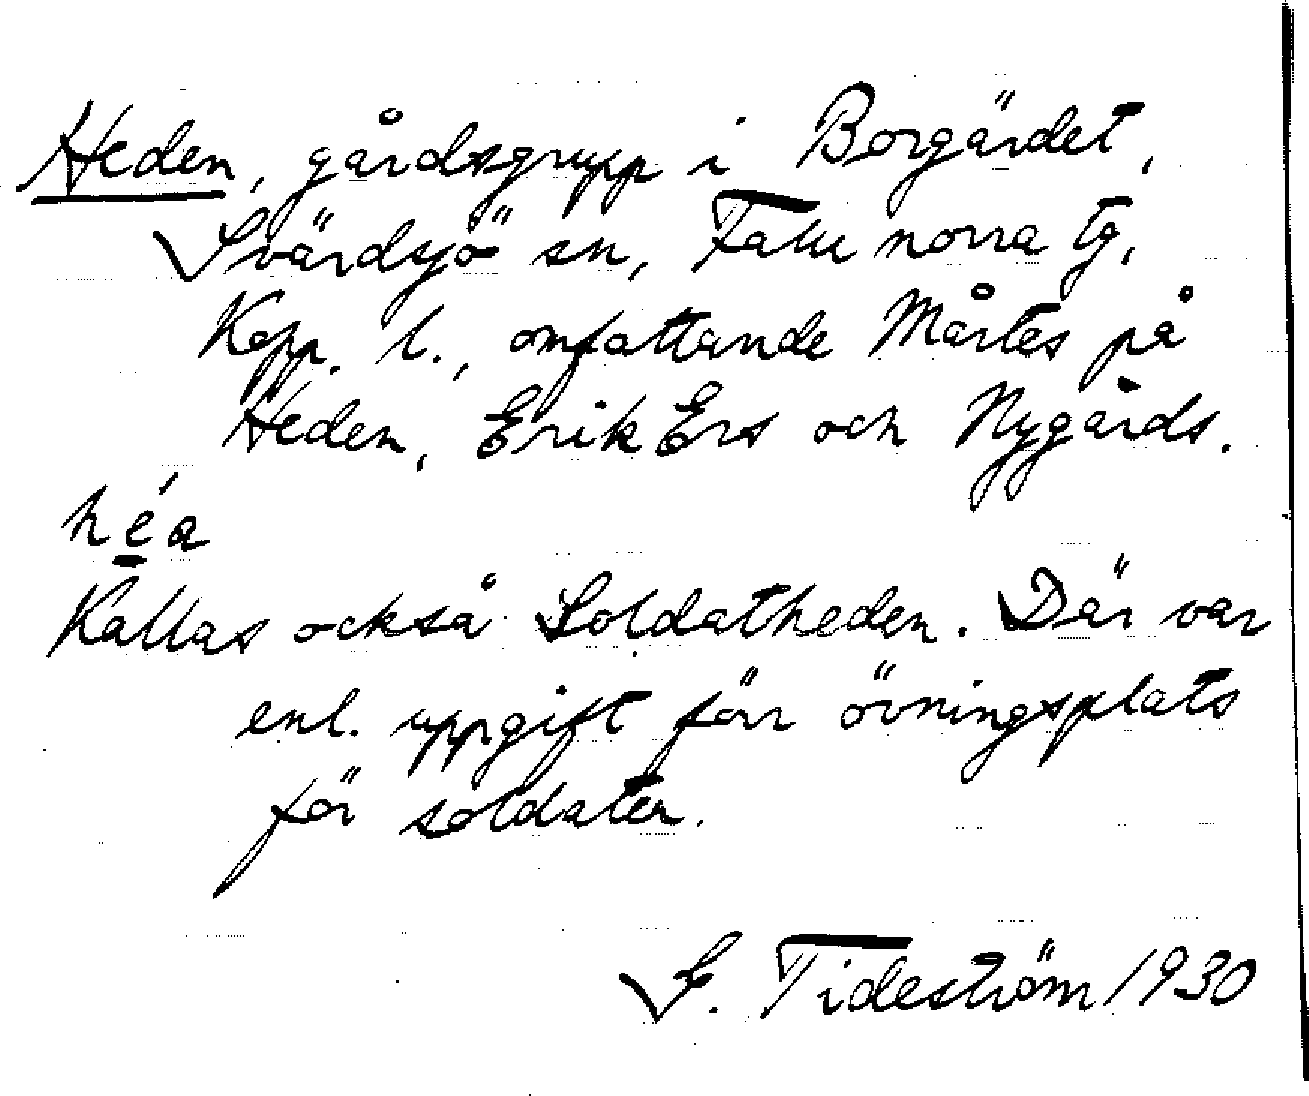 Heden, gårdsgrupp i Borgärdet,
Svärdsjö sn, Falu norra tg,
Kopp. l., omfattande Mårtes på
Heden, Erik Ers och Nygårds.
héa
Kallas också Soldatheden. Där var
enl. uppgift förr övningsplats
för soldater.
S. Tideström 1930